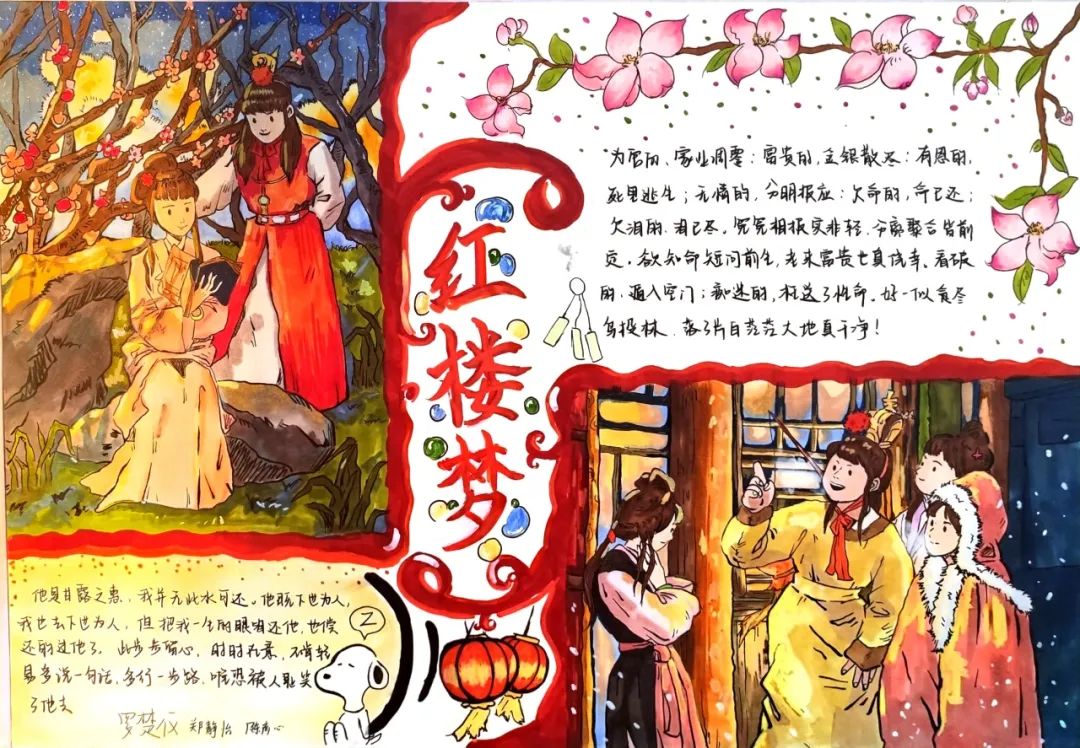 红楼梦
为官的、家业凋零;富贵的,金银散尽;有恩的,
死里逃生;无情的,分明报应;欠命的,命已还;
欠泪的.泪已尽。冤冤相报实非轻.分离聚合皆前
定。欲知命短问前生,老来富贵也真侥幸。看破
的.遁入空门;痴迷的,枉送了性命。好一似食尽
鸟投林.落了片白茫茫大地真干净!
他是甘露之惠,我并无此水可还。他既下世为人,
我也去下世为人,但把我一生的眼泪还他,也偿
还的过他了。此步步留心,时时在意,不肯轻
易多说一句话,多行一步路,唯恐被人耻笑
了他去
Z
罗楚仪 郑静怡